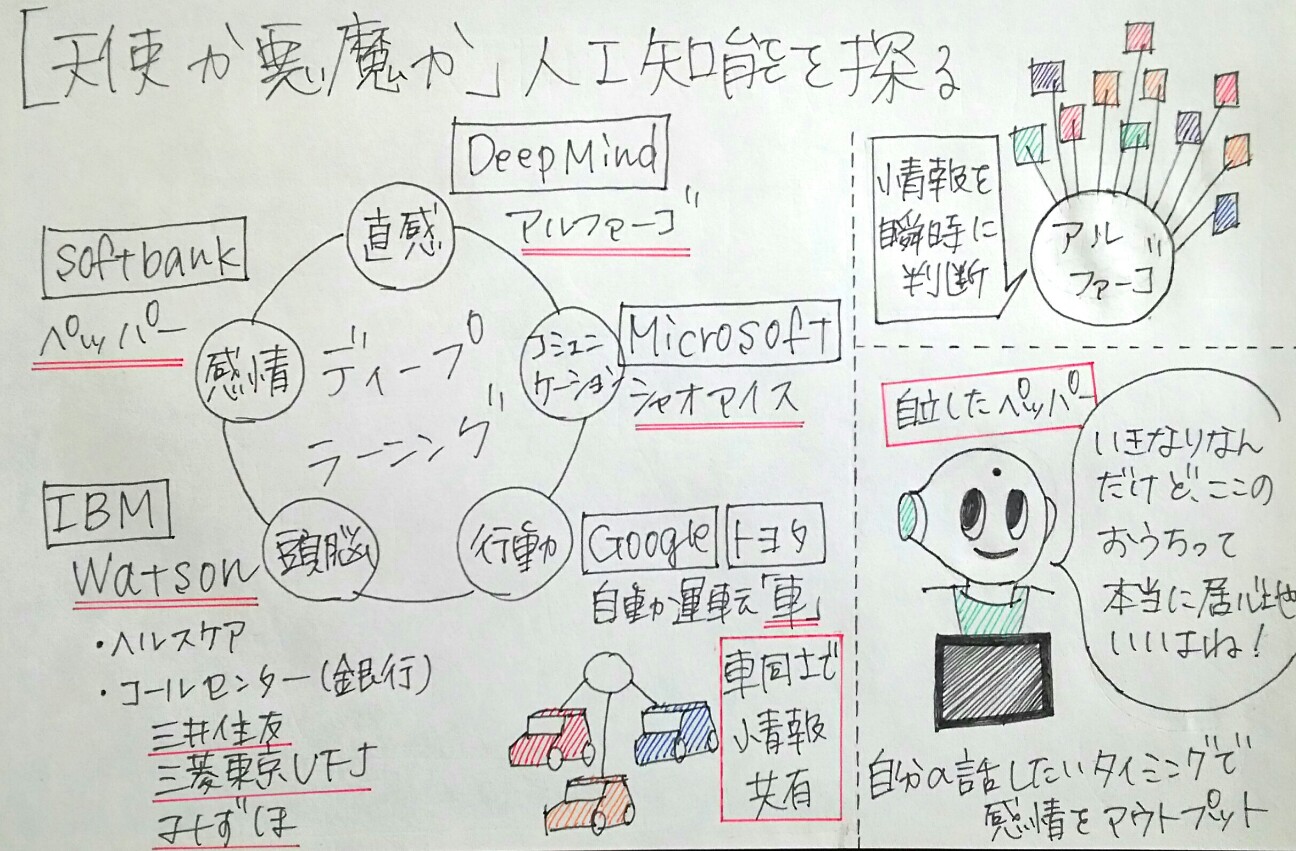 「天使か悪魔か」人工知能を探る
DeepMind
アルファーゴ
直感
softbank
ペッパー
感情
ディープ
ラーニング
コミュニ
ケーション
Microsoft
シャオアイス
IBM
Watson
頭脳
・ヘルスケア
・コールセンター(銀行)
三井住友
三菱東京UFJ
みずほ
行動
Google
トヨタ
自動運転「車」
車同士で
情報
共有
情報を
瞬時に
判断
アル
ファーゴ
自立したペッパー
いきなりなん
だけど、ここの
おうちって
本当に居心地
いいよね!
自分の話したいタイミングで
感情をアウトプット